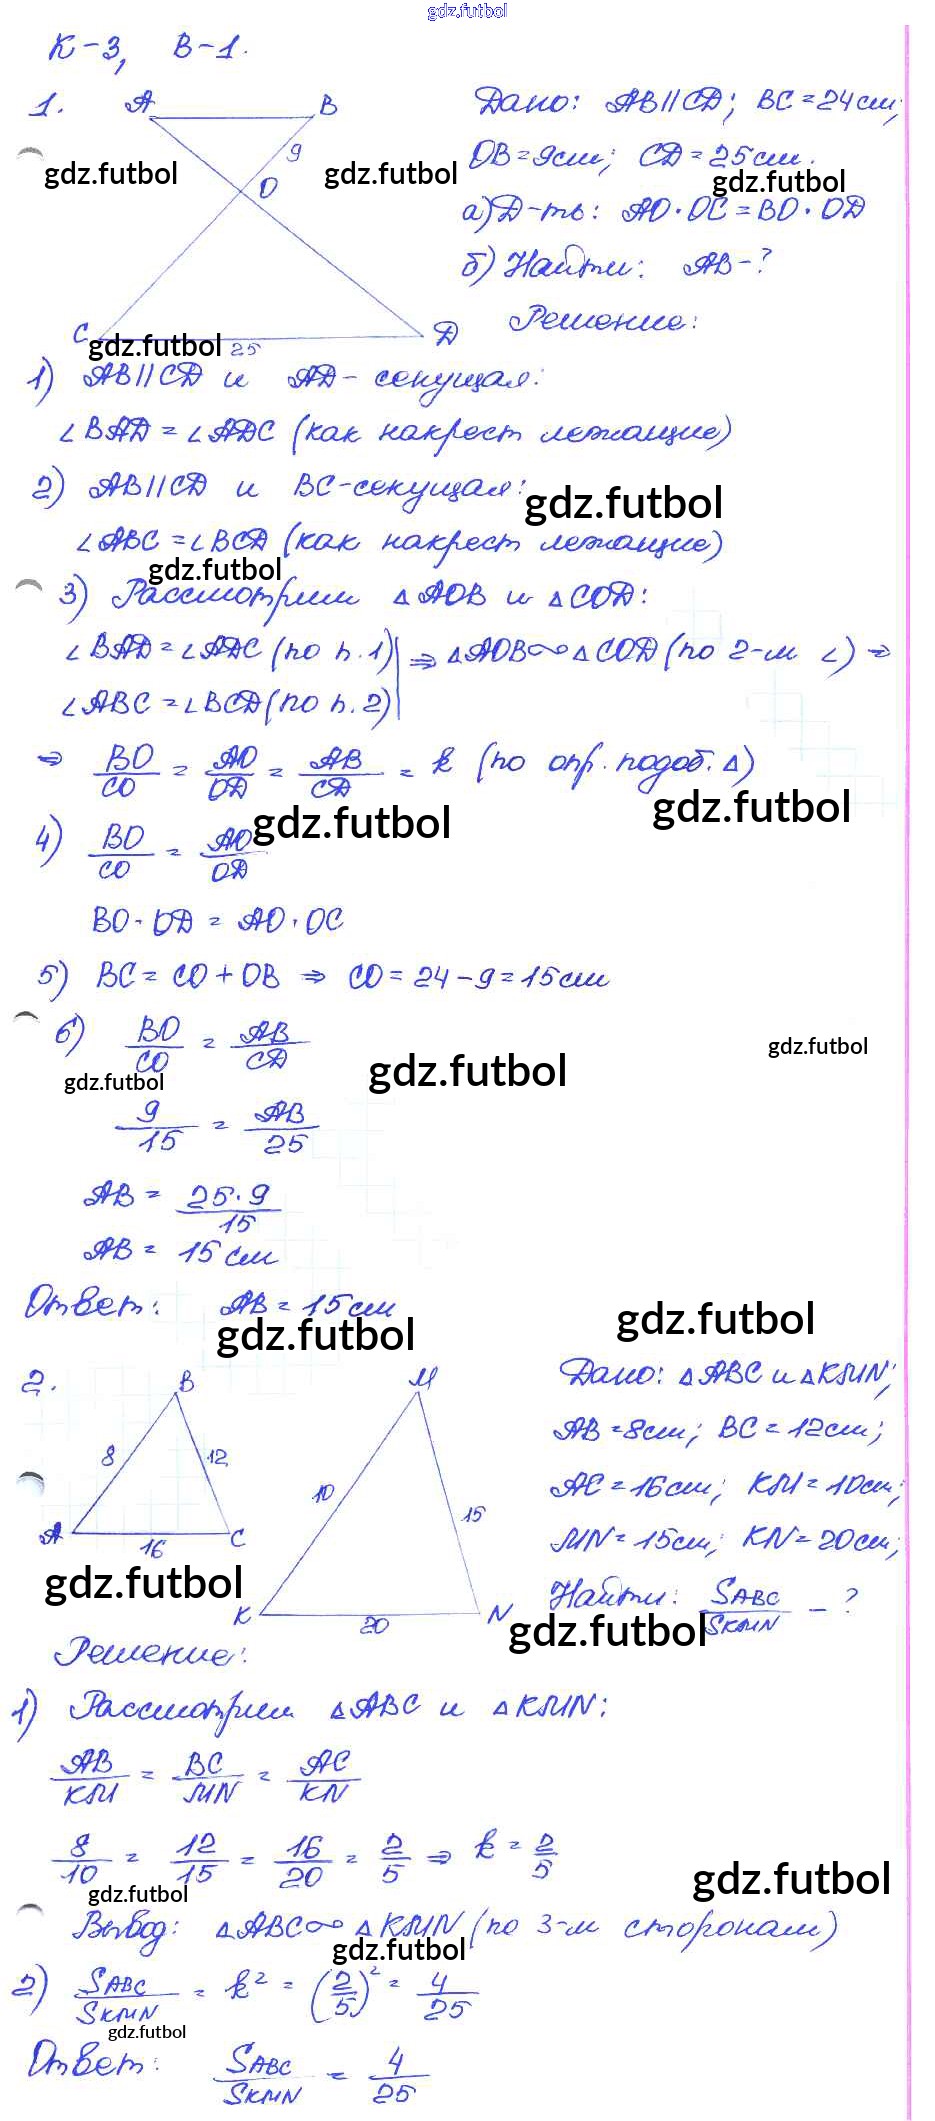 gdz.futbol
К-3, В-1.
1. A B
9
O
C D
25
Дано: AB||CD; BC=24см;
OB=9см; CD=25см.
а) Д-ть: AO·OC=BO·OD
б) Найти: AB-?
Решение:
gdz.futbol gdz.futbol gdz.futbol
gdz.futbol
1) AB||CD и AD-секущая:
∠BAD=∠ADC (как накрест лежащие)
2) AB||CD и BC-секущая:
gdz.futbol
∠ABC=∠BCD (как накрест лежащие)
gdz.futbol
3) Рассмотрим △AOB и △COD:
∠BAD=∠ADC (по п.1) | ⇒ △AOB∾△COD (по 2-м ∠) ⇒
∠ABC=∠BCD (по п.2) |
⇒ BO/CO = AO/OD = AB/CD = k (по опр. подоб. △)
gdz.futbol gdz.futbol
4) BO/CO = AO/OD
BO·OD = AO·OC
5) BC = CO+OB ⇒ CO = 24-9=15см
6) BO/CO = AB/CD
gdz.futbol gdz.futbol gdz.futbol
9/15 = AB/25
AB = 25·9/15
AB = 15см
Ответ: AB=15см
gdz.futbol gdz.futbol
2. B M
8 12
10 15
A C
16
K N
20
Дано: △ABC и △KMN;
AB=8см; BC=12см;
AC=16см; KM=10см;
MN=15см; KN=20см;
Найти: SABC/SKMN - ?
gdz.futbol gdz.futbol
Решение:
1) Рассмотрим △ABC и △KMN:
AB/KM = BC/MN = AC/KN
8/10 = 12/15 = 16/20 = 2/5 ⇒ k = 2/5
gdz.futbol gdz.futbol
Вывод: △ABC∾△KMN (по 3-м сторонам)
gdz.futbol
2) SABC/SKMN = k² = (2/5)² = 4/25
gdz.futbol
Ответ: SABC/SKMN = 4/25